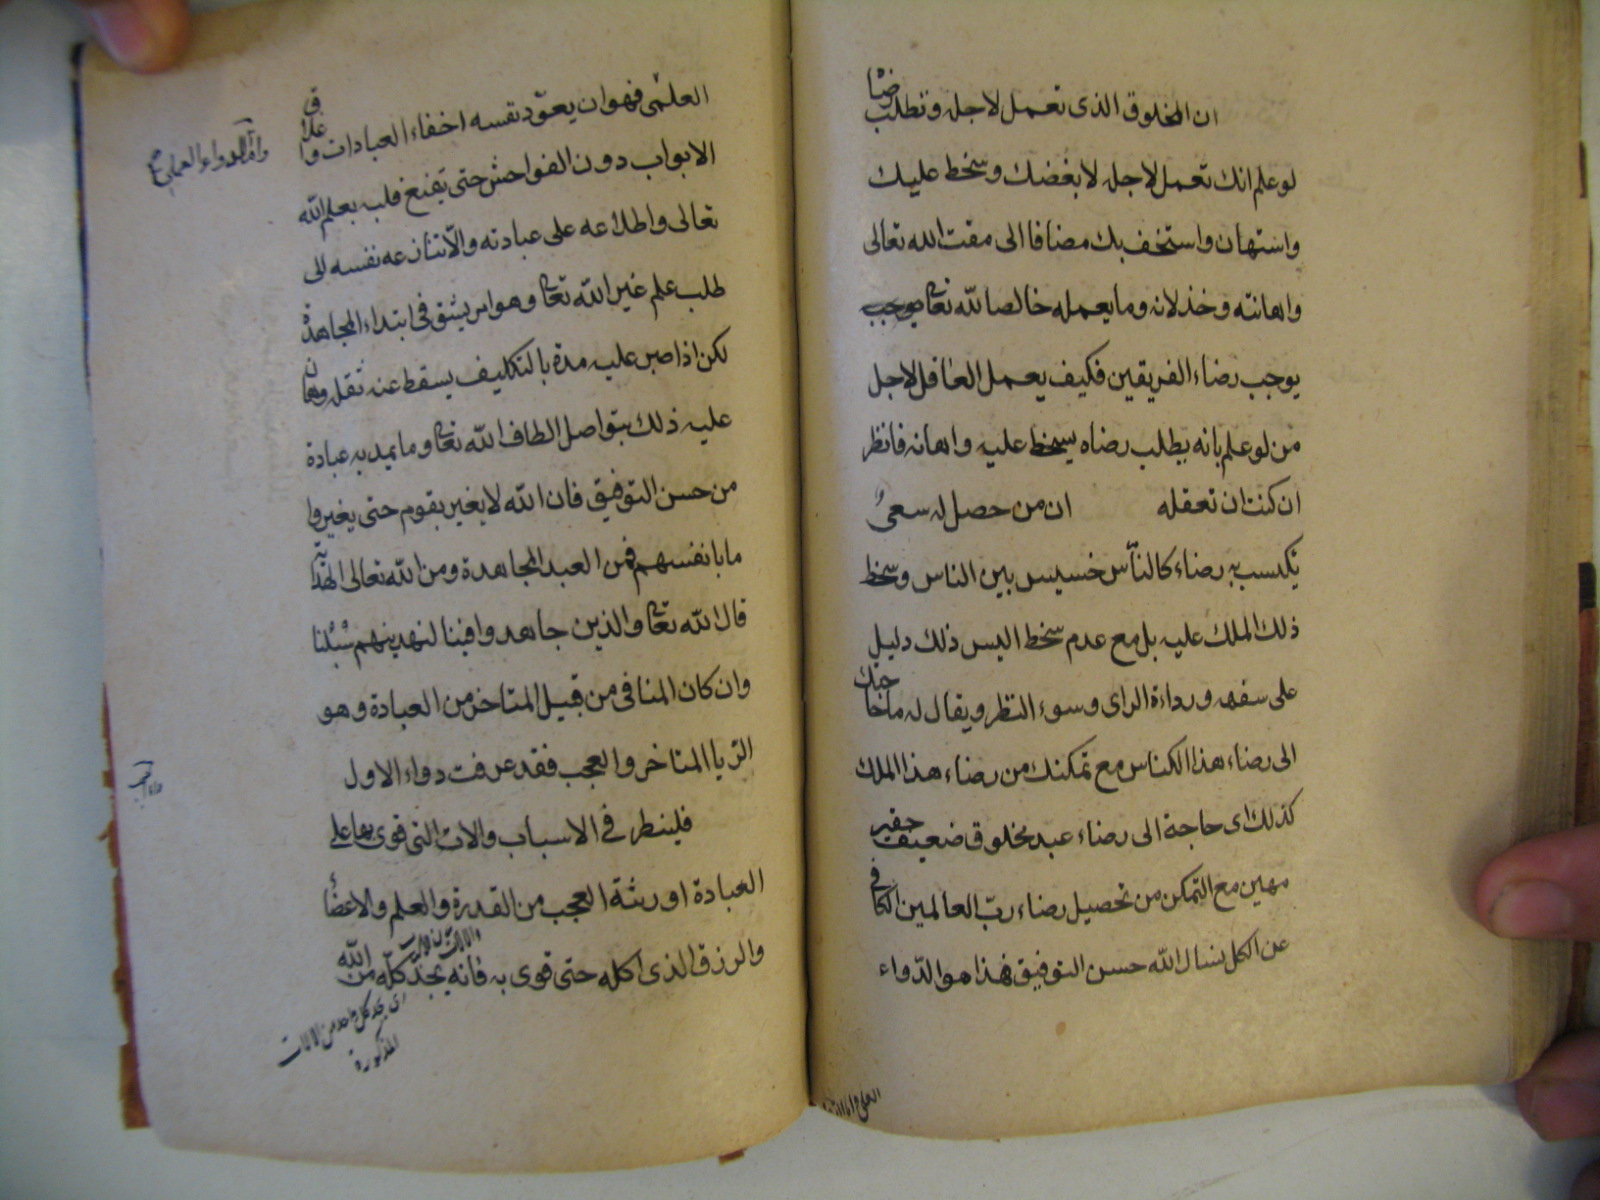 ان المخلوق الذى تعمل لاجله وتطلب رضا
لو علم انك تعمل لاجله لابغضك وسخط عليك
واستهان واستخف بك مضافا الى مقت الله تعالى
واهانته وخذلانه وما يعمله خالصا لله تعا يوجب
يوجب رضاء الفريقين فكيف يعمل العاقل لاجل
من لو علم بانه يطلب رضاه يسخط عليه واهانه فانظر
ان كنت ان تعقله ان من حصل له سعى
يكسب به رضاء كالناس خسيس بين الناس وسخط
ذلك الملك عليه بل مع عدم سخط اليس ذلك دليل
على سفهه ورداءة الراى وسوء النظر ويقال له ما حاجتك
الى رضاء هذا الكناس مع تمكنك من رضاء هذا الملك
كذلك اى حاجة الى رضاء عبد مخلوق ضعيف حقير
مهين مع التمكن من تحصيل رضاء ربّ العالمين الكافى
عن الكل نسال الله حسن التوفيق فهذا هو الدّواء
العلمى واما
العلمى فهو ان يعوّد نفسه اخفاء العبادات واغلاق
الابواب دون الفواحش حتى يقنع قلبه بعلم الله
تعالى واطلاعه على عبادته والّا تنازعه نفسه الى
طلب علم غير الله تعا وهو امر يشق فى ابتداء المجاهدة
لكن اذا صبر عليه مدة بالتكليف يسقط عنه ثقله وهان
عليه ذلك بتواصل الطاف الله تعا وما يمد به عبادة
من حسن التوفيق فان الله لا يغير بقوم حتى يغيروا
ما بانفسهم فمن العبد المجاهدة ومن الله تعالى الهداية
قال الله تعا والذين جاهدوا فينا لنهدينهم سُبُلنا
وان كان المنافى من قبيل المتاخر من العبادة وهو
الريا المتاخر والعجب فقد عرفت دواء الاول
فلينظر فى الاسباب والات التى قوى بها على
العبادة اورثة العجب من القدرة والعلم والاعضاء
والرزق الذى اكله حتى قوى به فانه يجد كله من الله
اى يجد كل واحد من الالات
المذكورة
واما الدواء العملى